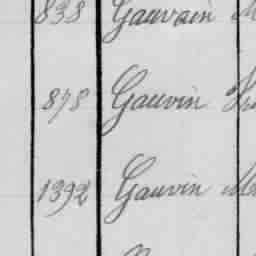 838 Gauvain
878 Gauvin
1392 Gauvin